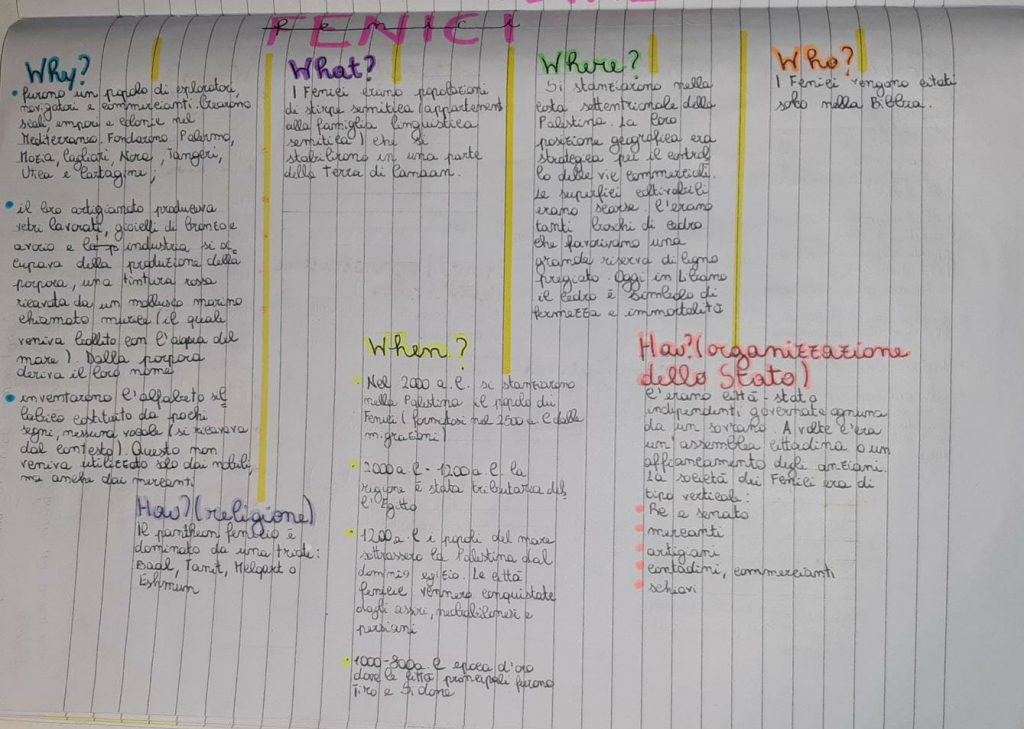 FENICI
Why?
• furono un popolo di esploratori,
navigatori e commercianti. Crearono
scali, empori e colonie nel
Mediterraneo. Fondarono Palermo,
Mozia, Cagliari, Nora, Tangeri,
Utica e Cartagine;
• il loro artigianato produceva
vetri lavorati, gioielli di bronzo e
avorio e la industria si oc
cupava della produzione della
porpora, una tintura rossa
ricavata da un mollusco marino
chiamato murice (il quale
veniva bollito con l'acqua del
mare). Dalla porpora
deriva il loro nome
• inventarono l'alfabeto sil
labico costituito da pochi
segni, nessuna vocale (si ricavava
dal contesto). Questo non
veniva utilizzato solo dai nobili,
ma anche dai mercanti
How? (religione)
Il pantheon fenicio è
dominato da una triade:
Baal, Tanit, Melqart o
Eshmun
What?
I Fenici erano popolazioni
di stirpe semitica (appartenenti
alla famiglia linguistica
semitica) che si
stabilirono in una parte
della Terra di Canaan.
When?
• Nel 2000 a.C. si stanziarono
nella Palestina il popolo dei
Fenici (formatosi nel 2500 a.C dalle
migrazioni)
• 2000 a.C - 1200 a.C. la
regione è stata tributaria del
l'Egitto
• 1200 a.C i popoli del mare
sottrassero la Palestina dal
dominio egizio. Le città
fenicie vennero conquistate
dagli assiri, neobabilonesi e
persiani
• 1000-800 a.C epoca d'oro
dove le città principali furono
Tiro e Sidone
Where?
Si stanziarono nella
costa settentrionale della
Palestina. La loro
posizione geografica era
strategica per il control
lo delle vie commerciali.
Le superfici coltivabili
erano scarse. C'erano
tanti boschi di cedro
che favorivano una
grande riserva di legno
pregiato. Oggi in Libano
il cedro è simbolo di
fermezza e immortalità
Who?
I Fenici vengono citati
solo nella Bibbia.
How? (organizzazione
dello Stato)
C'erano città-stato
indipendenti governate ognuna
da un sovrano. A volte c'era
un assemblea cittadina o un
affiancamento degli anziani.
La società dei Fenici era di
tipo verticale:
• Re e senato
• mercanti
• artigiani
• contadini, commercianti
• schiavi